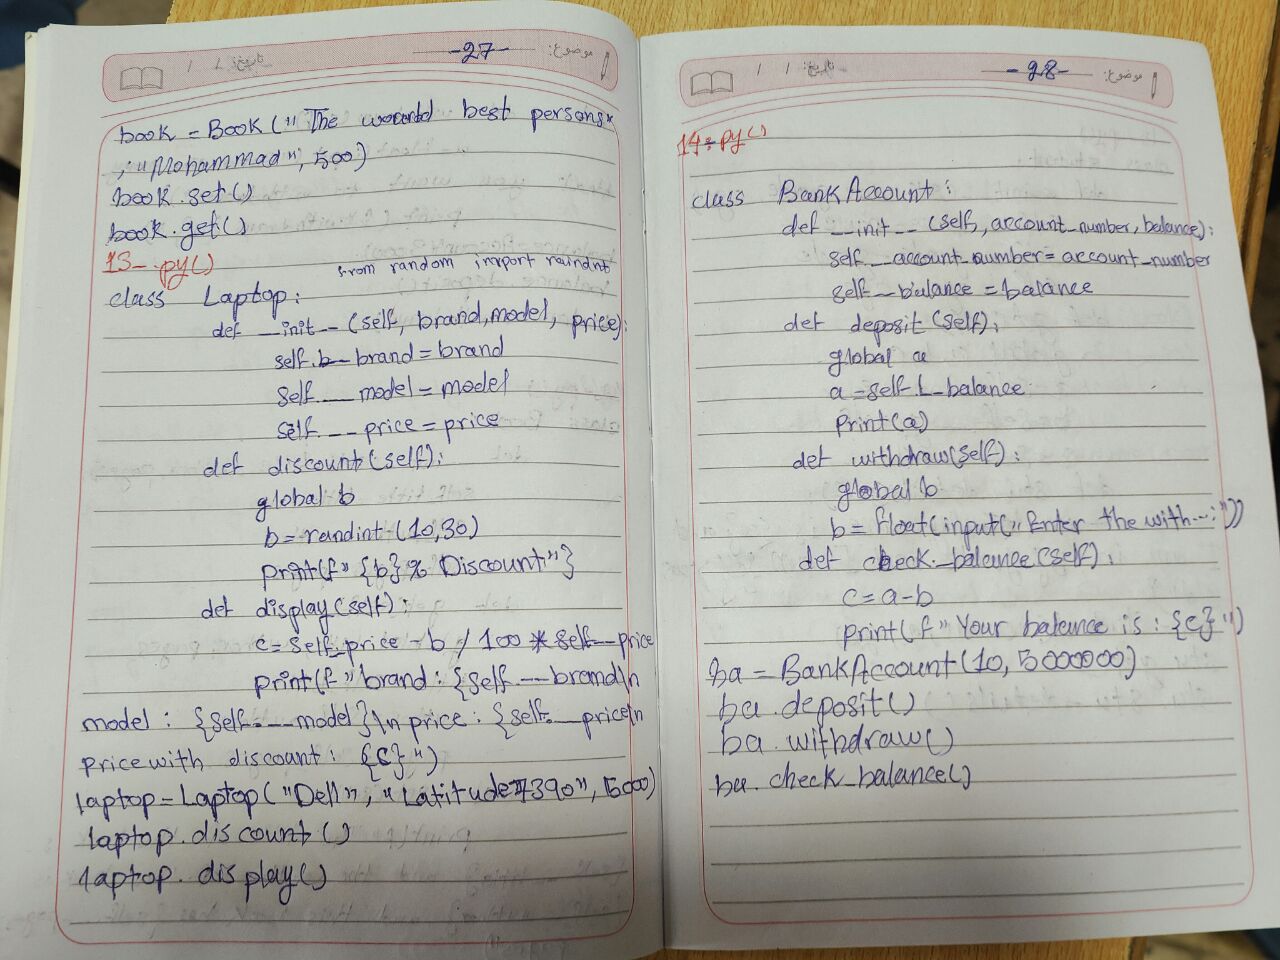 موضوع: -27- تاریخ: / /
book = Book ("The world best persons"
, "Mohammad", 500)
book.set()
book.get()
13-.py()
from random import raindint
class Laptop:
def __init__(self, brand, model, price):
self.__brand = brand
self.__model = model
self.__price = price
def discount(self):
global b
b = randint (10,30)
print(f" {b}% Discount"}
def display(self):
c = self.price - b / 100 * self.__price
print(f"brand: {self.__brand\n
model: {self.__model}\n price: {self.__price\n
price with discount: {c} ")
laptop = Laptop("Dell", "Latitude 7390", 5000)
laptop.discount()
laptop.display()
موضوع: -28- تاریخ: / /
14-.py()
class BankAccount:
def __init__(self, account_number, balance):
self.__account_number = account_number
self.__balance = balance
def deposit(self):
global a
a = self.__balance
print(a)
def withdraw(self):
global b
b = float(input("Enter the with...:"))
def check_balance(self):
c = a-b
print(f"Your balance is: {c} ")
ba = BankAccount(10, 5000000)
ba.deposit()
ba.withdraw()
ba.check_balance()